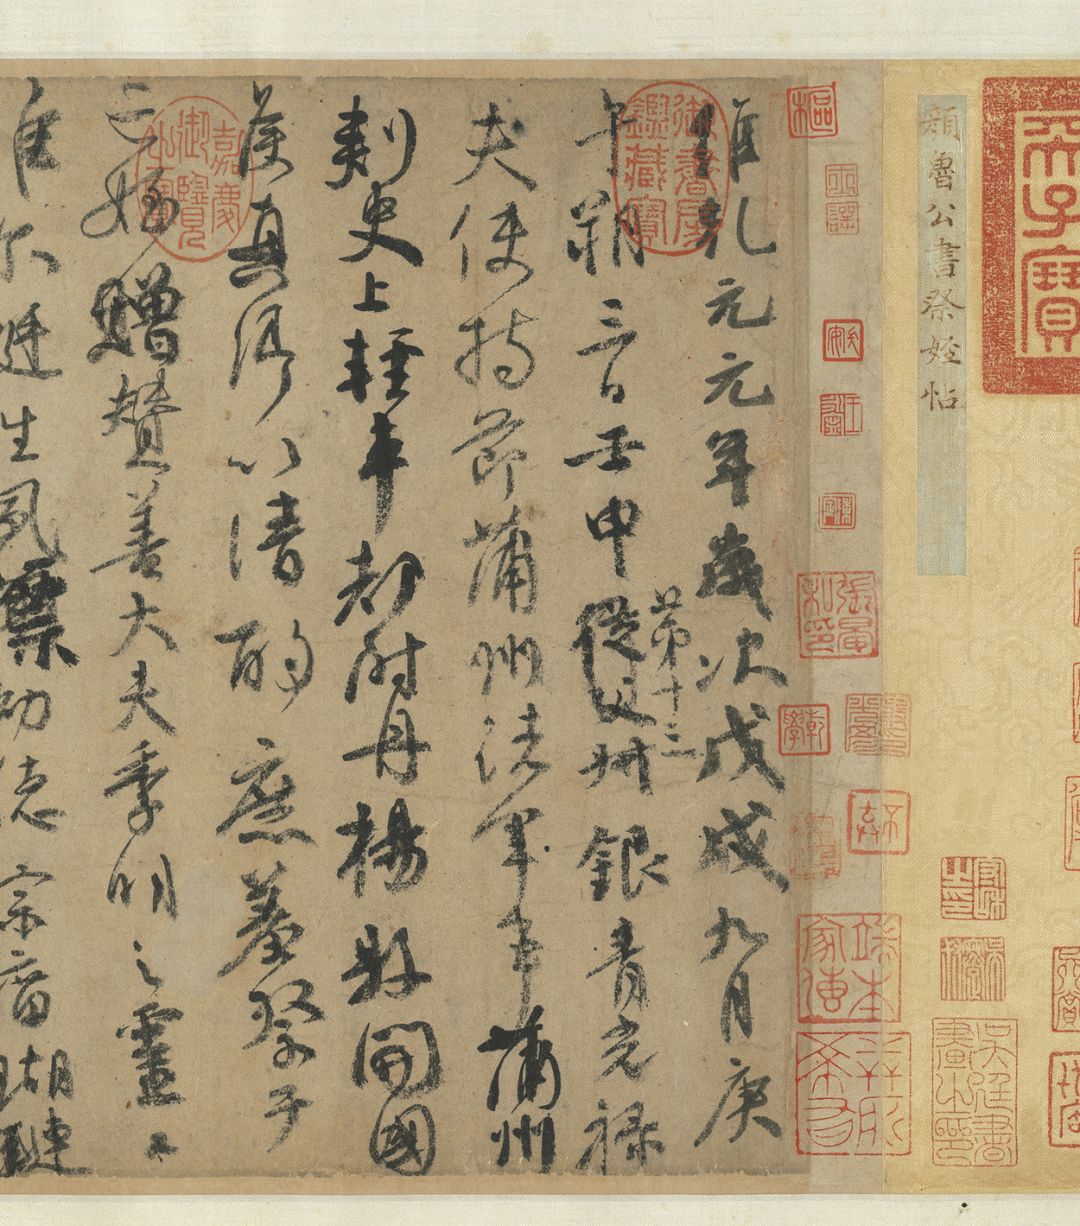 天子寶
顏魯公書祭姪帖
維乾元元年歲次戊戌九月庚
午朔三日壬申第十三從父叔銀青光祿
夫使持節蒲州諸軍事蒲州
刺史上輕車都尉丹楊縣開國
侯真卿以清酌庶羞祭于
亡姪贈贊善大夫季明之靈曰
惟爾挺生夙標幼德宗廟瑚璉
御書房鑑藏寶
嘉慶御覽之寶
樞